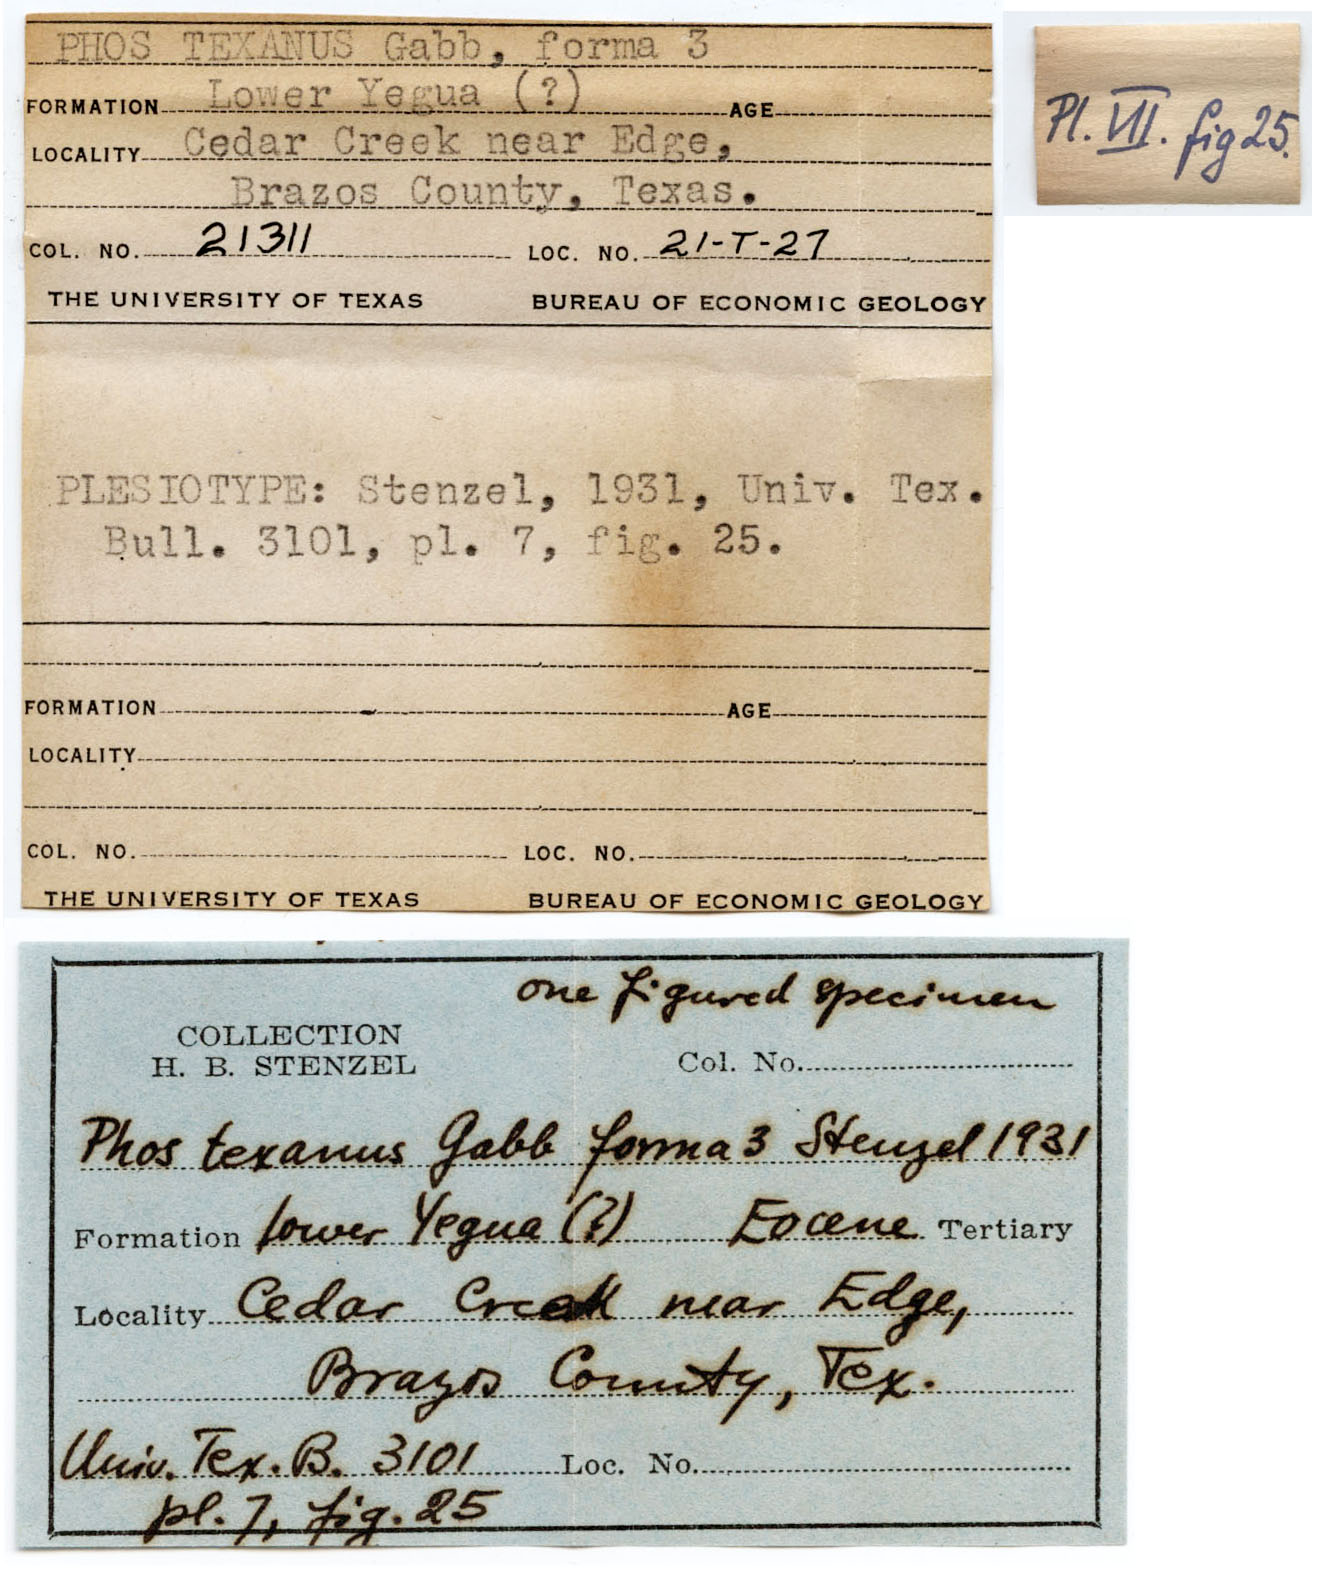 PHOS TEXANUS Gabb, forma 3
FORMATION Lower Yegua (?) AGE
LOCALITY Cedar Creek near Edge,
Brazos County, Texas.
COL. NO. 21311 LOC. NO. 21-T-27
THE UNIVERSITY OF TEXAS BUREAU OF ECONOMIC GEOLOGY
PLESIOTYPE: Stenzel, 1931, Univ. Tex.
Bull. 3101, pl. 7, fig. 25.
FORMATION AGE
LOCALITY
COL. NO. LOC. NO.
THE UNIVERSITY OF TEXAS BUREAU OF ECONOMIC GEOLOGY
Pl. VII. fig 25.
one figured specimen
COLLECTION
H. B. STENZEL
Col. No.
Phos texanus Gabb forma 3 Stenzel 1931
Formation lower Yegua (?) Eocene Tertiary
Locality Cedar Creek near Edge,
Brazos County, Tex.
Univ. Tex. B. 3101 Loc. No.
pl. 7, fig. 25